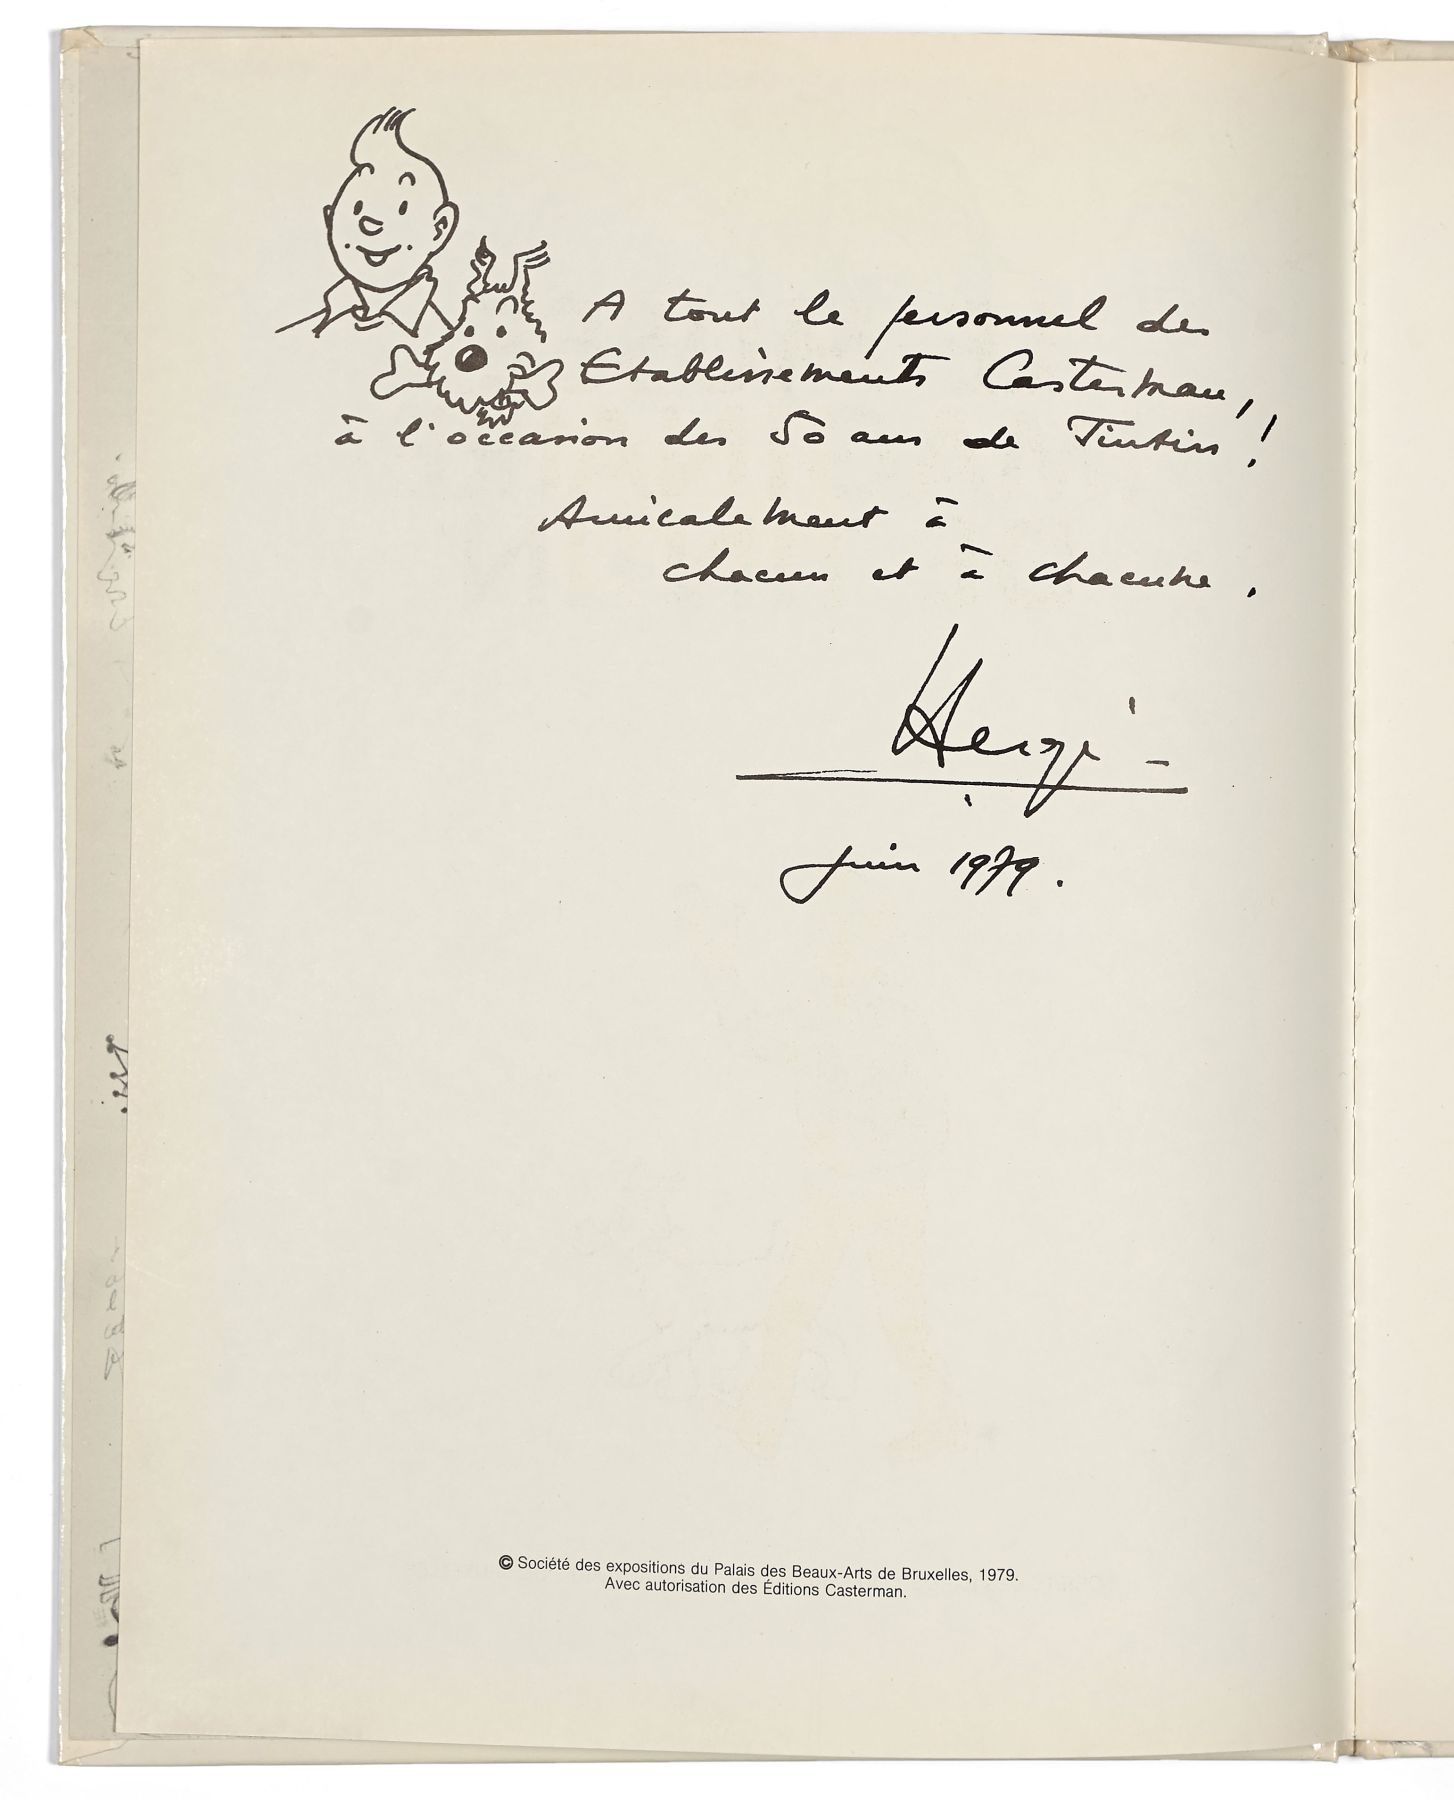 A tout le personnel des
Etablissements Casterman,
à l'occasion des 50 ans de Tintin !
Amicalement à
chacun et à chacune .
Hergé
Juin 1979 .
© Société des expositions du Palais des Beaux-Arts de Bruxelles, 1979.
Avec autorisation des Éditions Casterman.